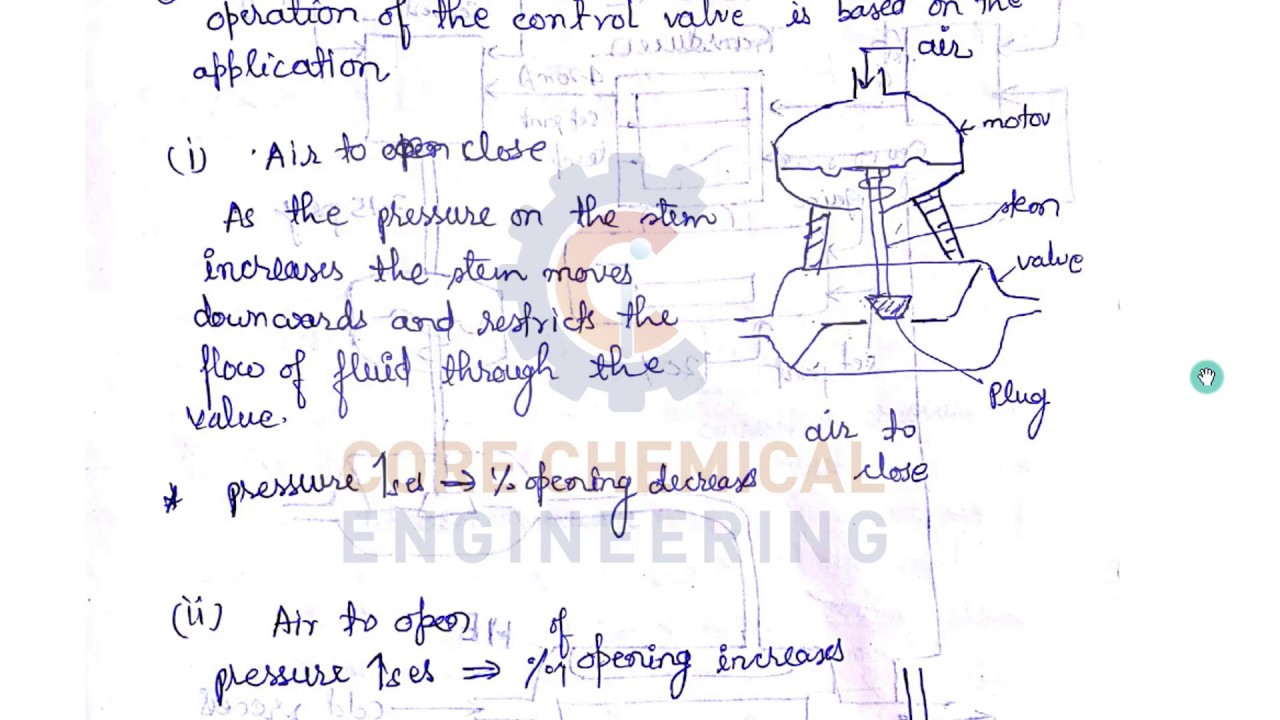 operation of the control valve is based on the
application
air
(i) Air to close
motor
As the pressure on the stem
stem
increases the stem moves
valve
downwards and restricts the
flow of fluid through the
Plug
value.
air to
close
CORE CHEMICAL
* pressure ↑ses ⇒ % opening decreases
ENGINEERING
(ii) Air to open
pressure ↑ses ⇒ % of opening increases